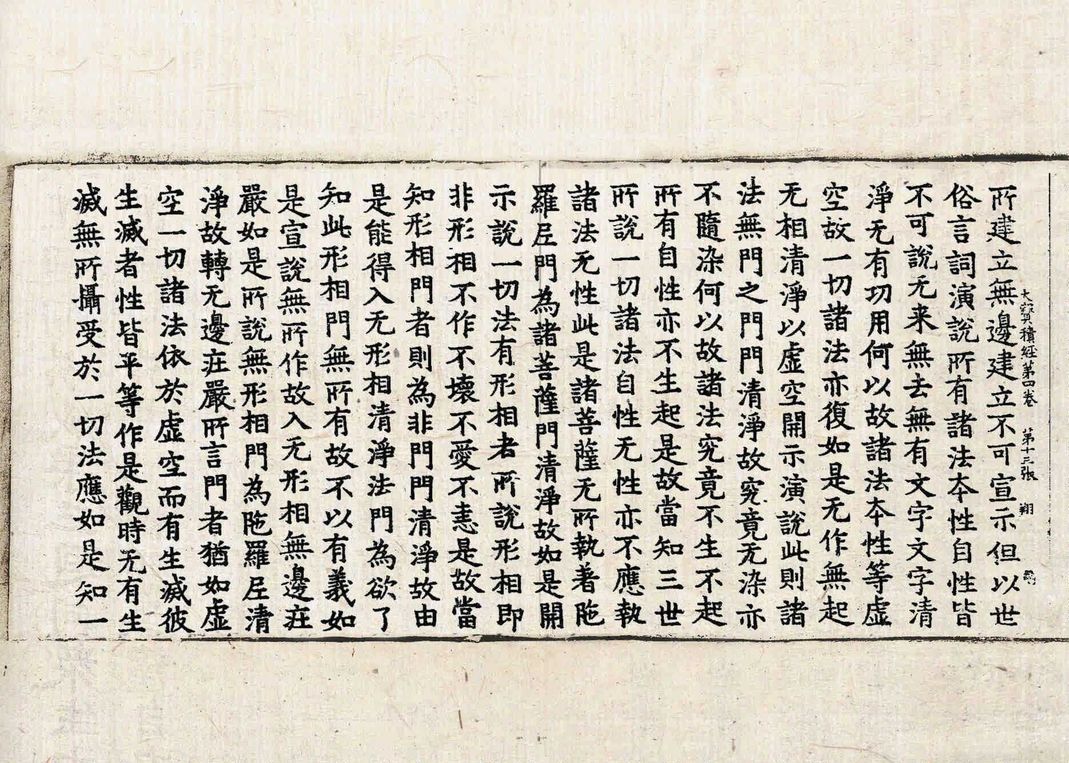 大寳積経第四卷 第十三張 翔
所建立無邊建立不可宣示但以世
俗言詞演說所有諸法夲性自性皆
不可說无来無去無有文字文字清
淨无有功用何以故諸法夲性等虛
空故一切諸法亦復如是无作無起
无相清淨以虛空開示演說此則諸
法無門之門門清淨故究竟无染亦
不隨染何以故諸法究竟不生不起
所有自性亦不生起是故當知三世
所說一切諸法自性无性亦不應執
諸法无性此是諸菩薩无所執著陁
羅尼門為諸菩薩門清淨故如是開
示說一切法有形相者所說形相即
非形相不作不壞不愛不恚是故當
知形相門者則為非門門清淨故由
是能得入无形相清淨法門為欲了
知此形相門無所有故不以有義如
是宣說無所作故入无形相無邊莊
嚴如是所說無形相門為陁羅尼清
淨故轉无邊莊嚴所言門者猶如虛
空一切諸法依於虛空而有生滅彼
生滅者性皆平等作是觀時无有生
滅無所攝受於一切法應如是知一